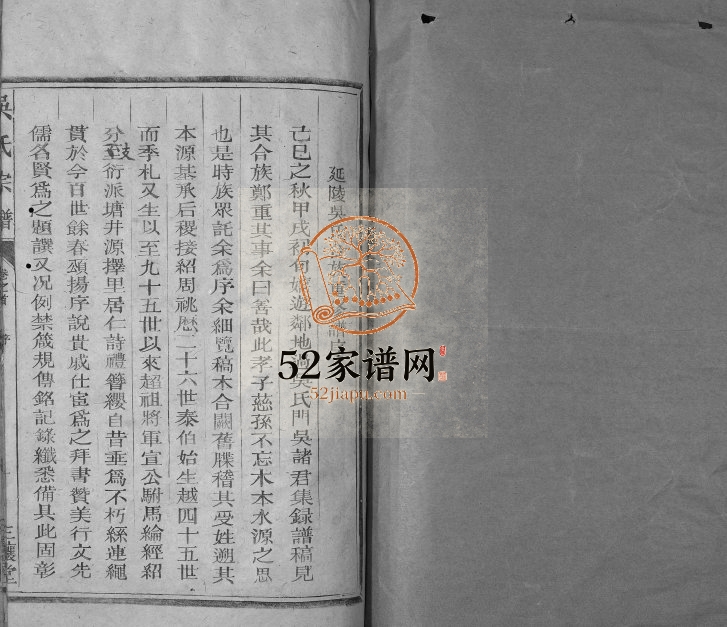 延陵吳
己巳之秋甲戌初旬嬉遊鄰地吳氏門吳諸君集録譜稿見
其合族鄭重其事余曰善哉此孝子慈孫不忘木本水源之思
也是時族眾託余爲序余細覽稿木合闕舊牒稽其受姓遡其
本源基承后稷接紹周祧歷二十六世泰伯始生越四十五世
而季札又生以至九十五世以來超祖將軍宣公駙馬綸經紹
分支至衍派塘井源擇里居仁詩禮簪纓自昔垂爲不朽繇連繩
貫於今百世餘春頦揚序說貴戚仕宦爲之拜書贊美行文先
儒名賢爲之題讚又况例禁箴規傳銘記錄纖悉備具此固彰
吳氏宗譜
卷之首
序
三讓堂
52家谱网
52jiapu.com